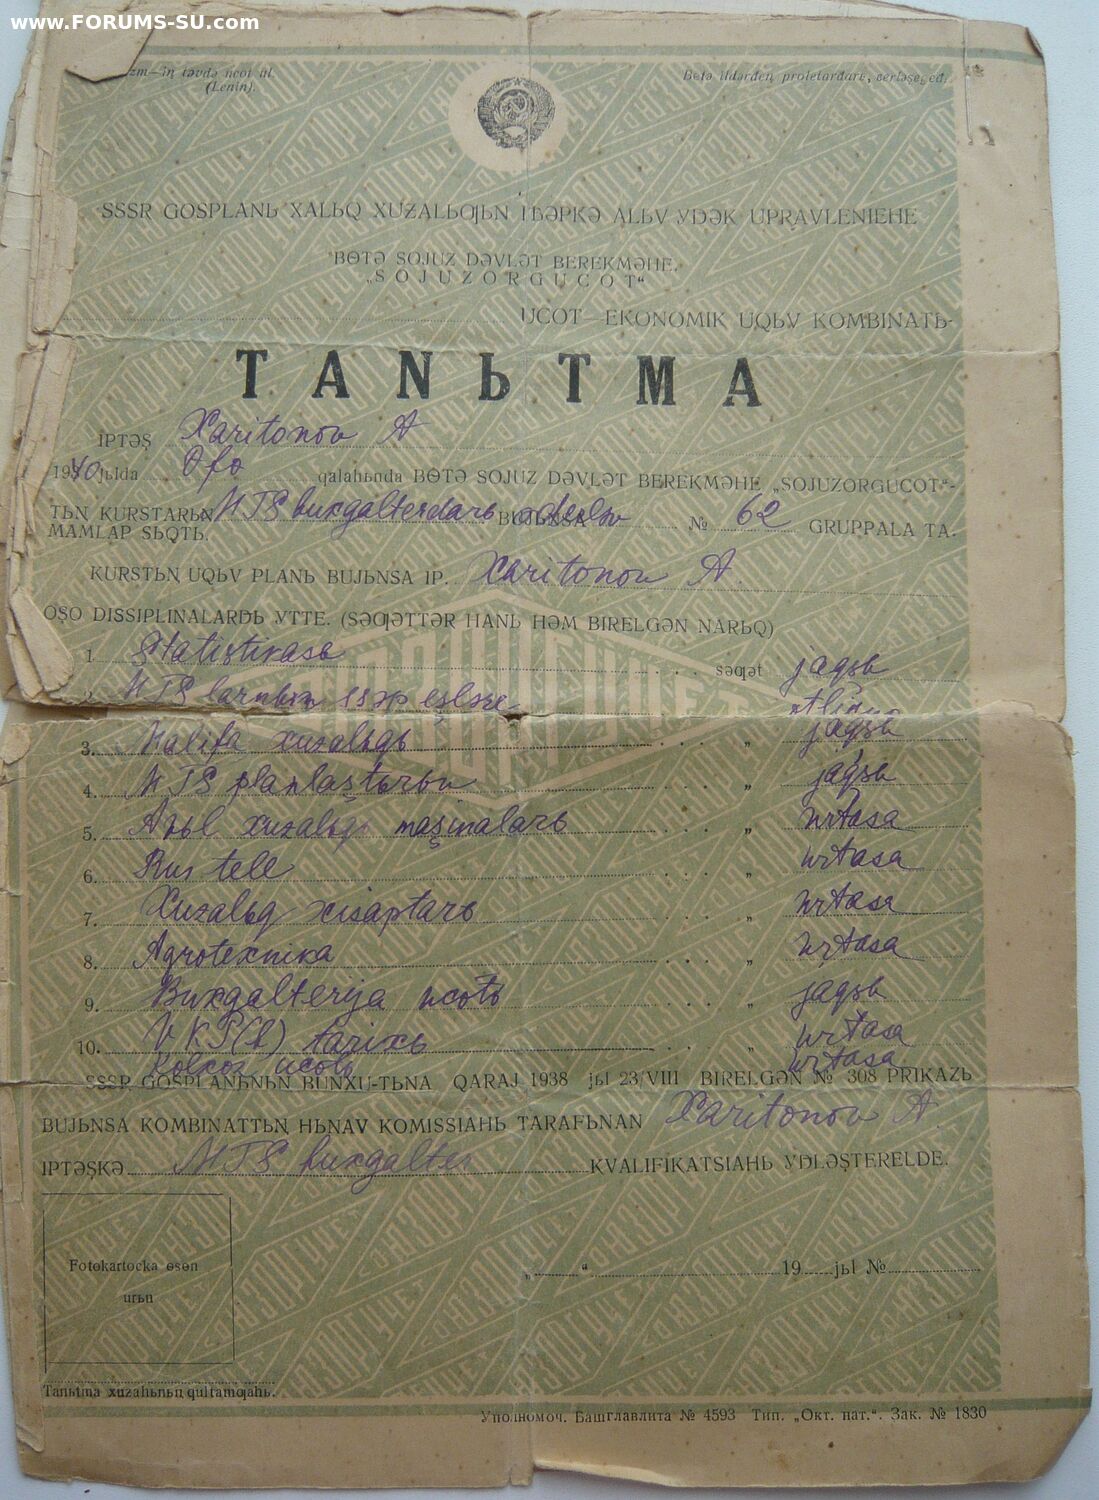 www.FORUMS-SU.com
zm—iꞑ təvdə ucot ul.
(Lenin).
Bɵtə ildərdeꞑ proletardarь, berləşegeđ.
SSSR GOSPLANЬ XALЬQ XUZALЬƢЬN IƂƏPKƏ ALЬV YDƏK UPRAVLENIEHE
BƟTƏ SOJUZ DƏVLƏT BEREKMƏHE
„SOJUZORGUCOT“
UCOT—EKONOMIK UQЬV KOMBINATЬ-
TANЬTMA
IPTƏŞ Xaritonov A
1940 jьlda Ɵfɵ qalahьnda BƟTƏ SOJUZ DƏVLƏT BEREKMƏHE „SOJUZORGUCOT“-
TЬꞐ KURSTARЬN MTS buxgalterdarь BUJЬNSA № 62 GRUPPALA TA-
MAMLAP SЬQTЬ.
KURSTЬꞐ UQЬV PLANЬ BUJЬNSA IP. Xaritonov A.
OŞO DISSIPLINALARĐЬ YTTE. (SƏƢƏTTƏR HANЬ HƏM BIRELGƏN NARЬQ)
1 Statistikasь səƣət jaqşь
2. MTS
3. Xalifa xuzalьgь „ jaqşь
4. MTS planlaştьrьv „ jaqşь
5. Aƀьl xuzalьgь maşinalarь „ urtasa
6. Rus tele „ urtasa
7. Xuzalьq xisaptarь „ urtasa
8. Agrotexnika „ urtasa
9. Buxgalterija ucotь „ jaqşь
10. VKP(b) tarixь „ urtasa
Kolxoz ucotь urtasa
SSSR GOSPLANЬNЬꞐ BUNXU-TЬNA QARAJ 1938 jьl 23/VIII BIRELGƏN № 308 PRIKAZЬ
BUJЬNSA KOMBINATTЬꞐ HЬNAV KOMISSIAHЬ TARAFЬNAN Xaritonov A.
IPTƏŞKƏ MTS buxgalter KVALIFIKATSIAHЬ YĐLƏŞTERELDE.
Fotokartocka ɵsɵn
urьn
„ “ 19 jьl №
Tanьtma xuzahьnьꞑ qultamƣahь.
Уполномоч. Башглавлита № 4593 Тип. „Окт. нат.“. Зак. № 1830